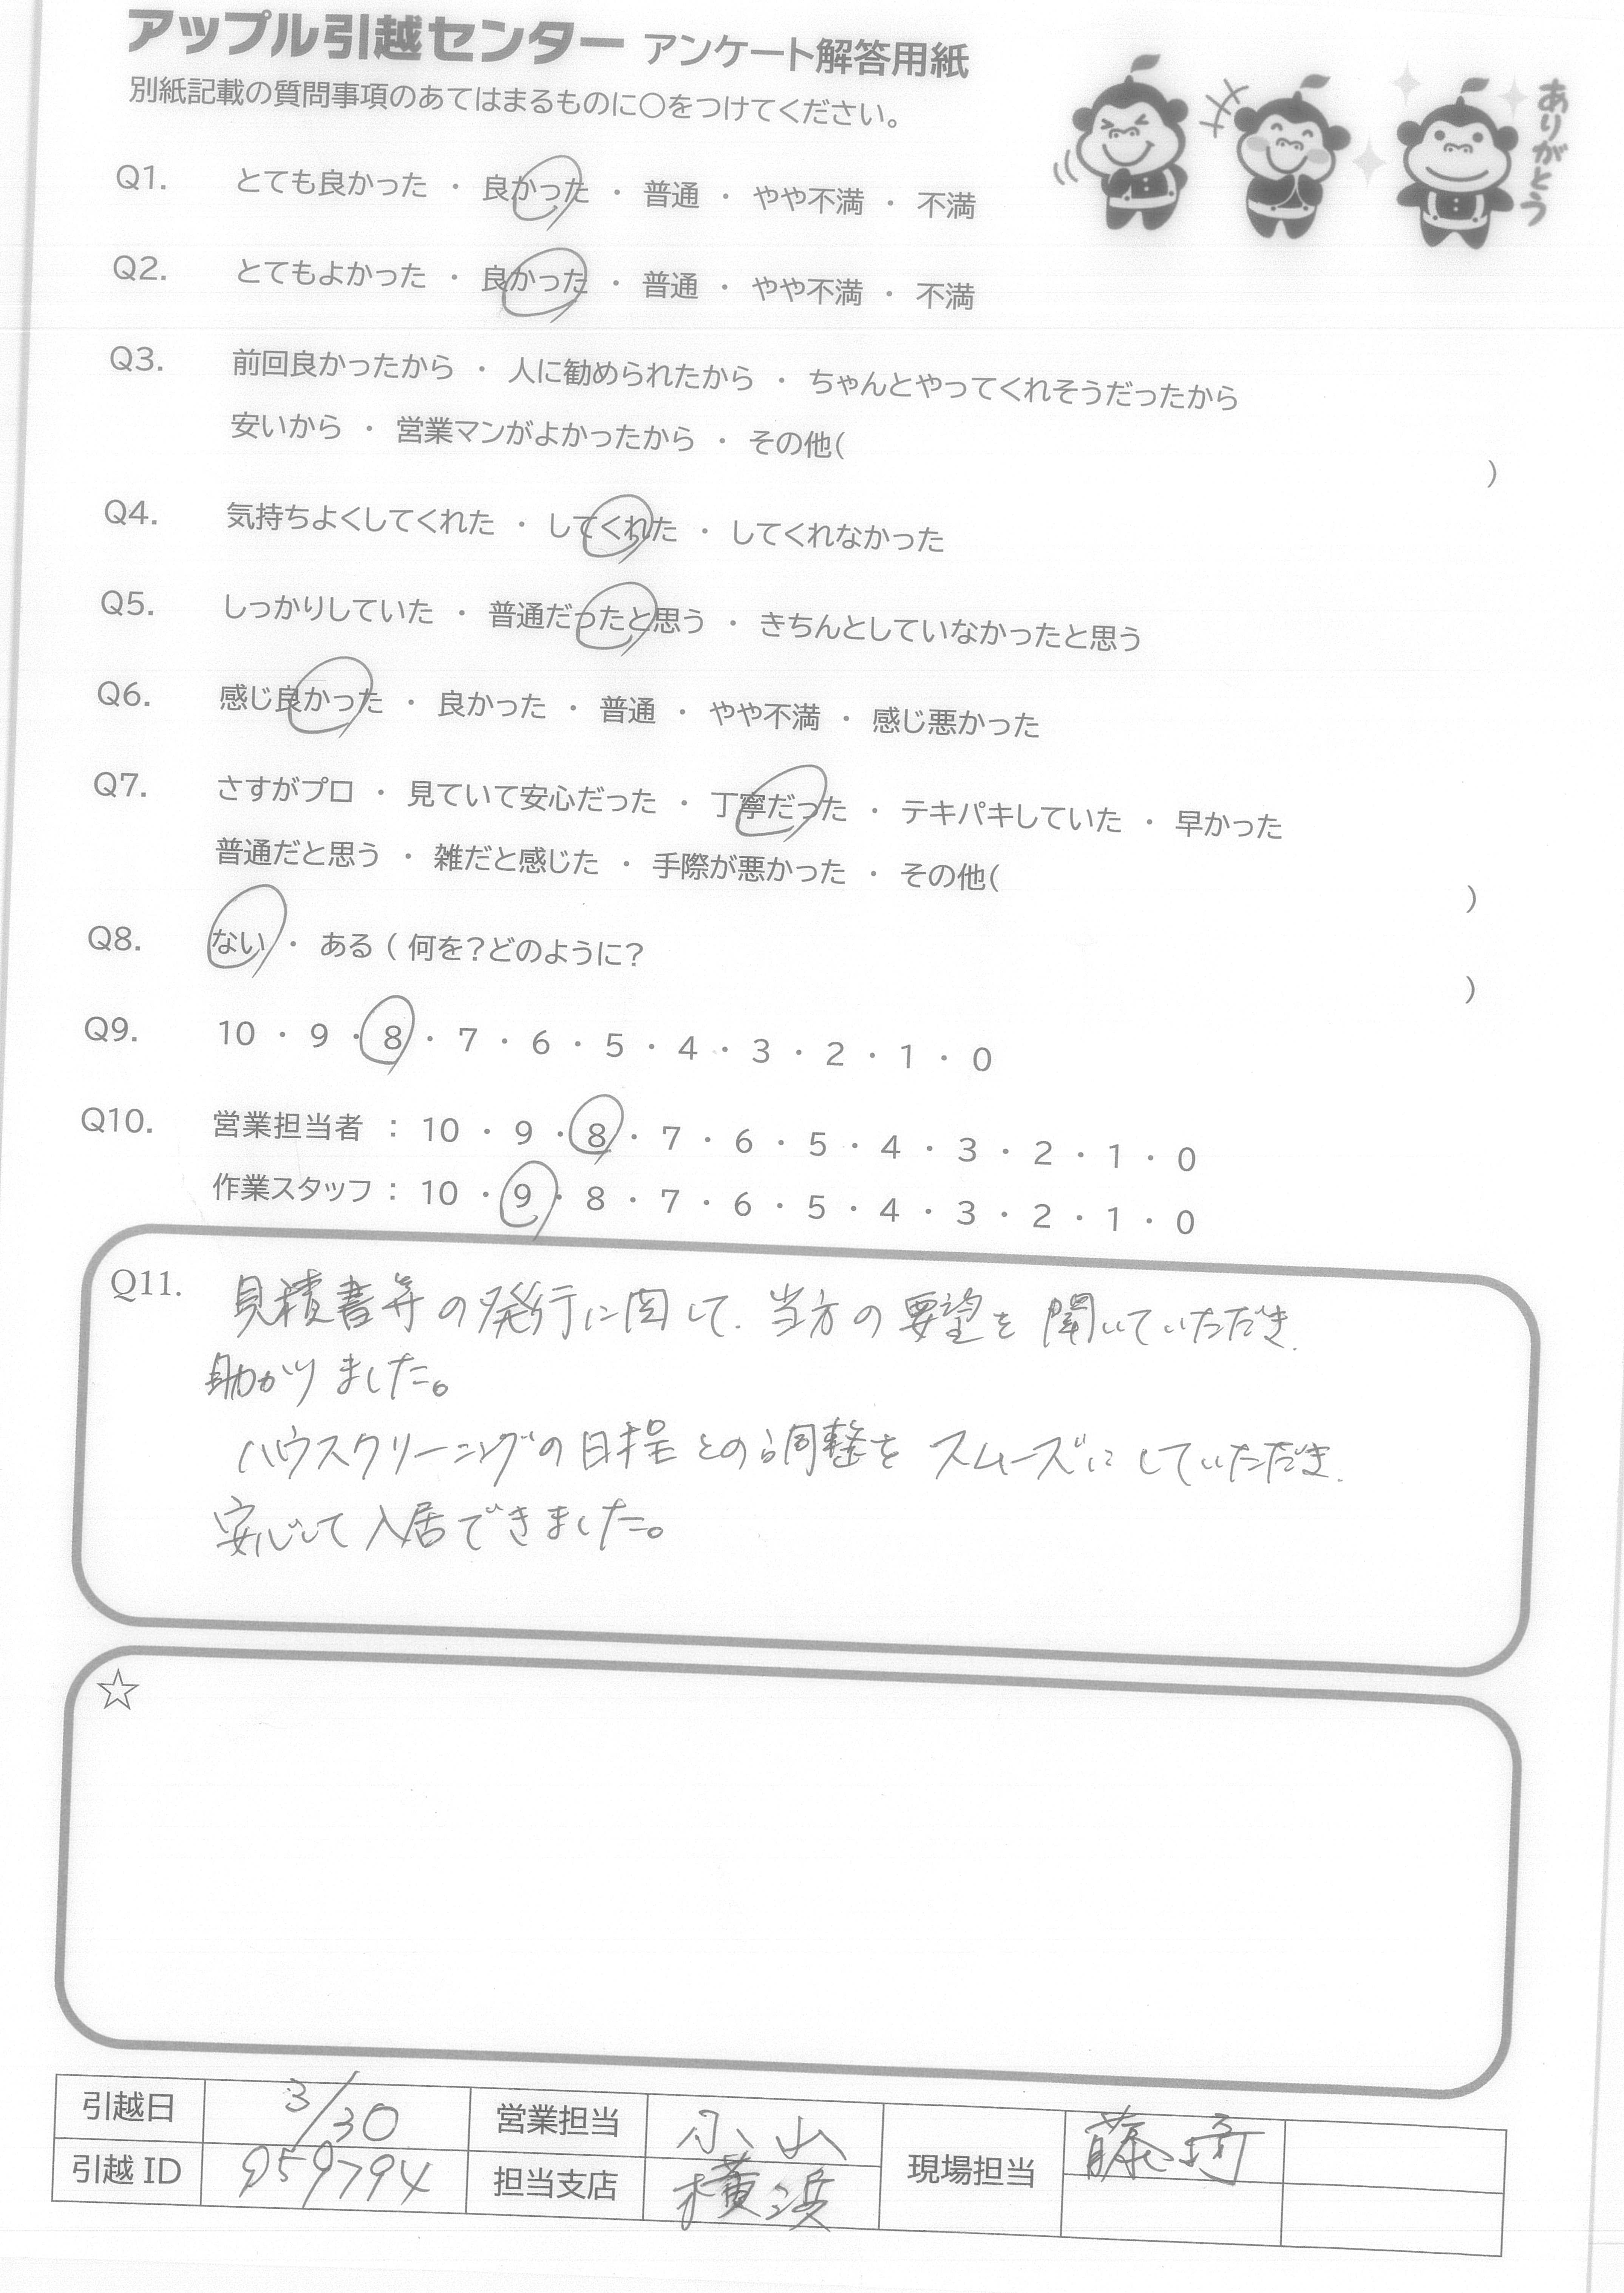 アップル引越センター アンケート解答用紙
別紙記載の質問事項のあてはまるものに〇をつけてください。
ありがとう
Q1. とても良かった ・ 良かった ・ 普通 ・ やや不満 ・ 不満
Q2. とてもよかった ・ 良かった ・ 普通 ・ やや不満 ・ 不満
Q3. 前回良かったから ・ 人に勧められたから ・ ちゃんとやってくれそうだったから
安いから ・ 営業マンがよかったから ・ その他( )
Q4. 気持ちよくしてくれた ・ してくれた ・ してくれなかった
Q5. しっかりしていた ・ 普通だったと思う ・ きちんとしていなかったと思う
Q6. 感じ良かった ・ 良かった ・ 普通 ・ やや不満 ・ 感じ悪かった
Q7. さすがプロ ・ 見ていて安心だった ・ 丁寧だった ・ テキパキしていた ・ 早かった
普通だと思う ・ 雑だと感じた ・ 手際が悪かった ・ その他( )
Q8. ない ・ ある ( 何を?どのように? )
Q9. 10 ・ 9 ・ 8 ・ 7 ・ 6 ・ 5 ・ 4 ・ 3 ・ 2 ・ 1 ・ 0
Q10. 営業担当者 : 10 ・ 9 ・ 8 ・ 7 ・ 6 ・ 5 ・ 4 ・ 3 ・ 2 ・ 1 ・ 0
作業スタッフ : 10 ・ 9 ・ 8 ・ 7 ・ 6 ・ 5 ・ 4 ・ 3 ・ 2 ・ 1 ・ 0
Q11. 見積書等の発行に関して、当方の要望を聞いていただき、
助かりました。
ハウスクリーニングの日程との調整をスムーズにしていただき、
安心して入居できました。
☆
引越日 3/30 営業担当 小山 現場担当 藤崎
引越ID 959794 担当支店 横浜